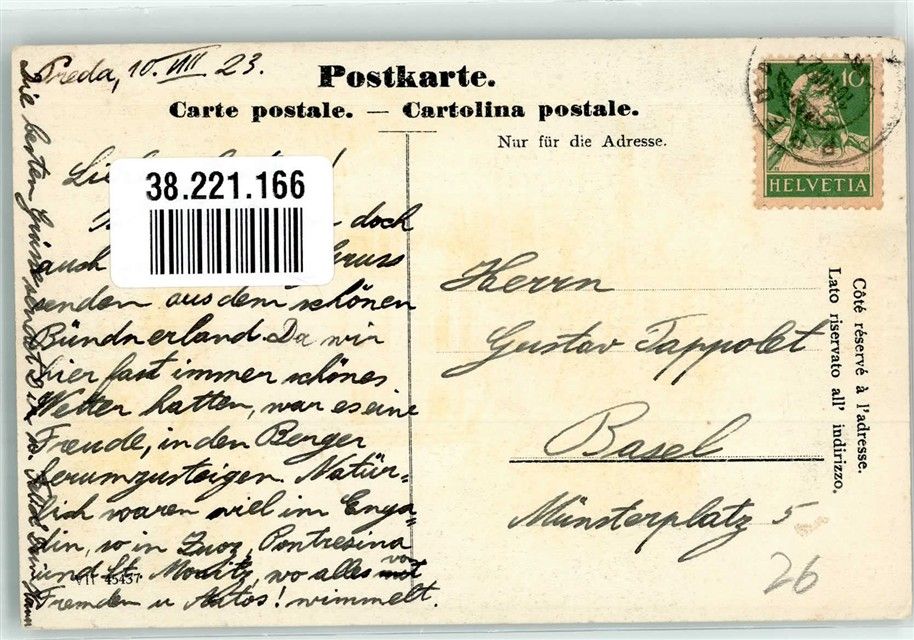 Preda, 10. VIII 23.
Postkarte.
Carte postale. — Cartolina postale.
Nur für die Adresse.
10
HELVETIA
38.221.166
doch
auch Gruss
senden aus dem schönen
Bündnerland. Da wir
hier fast immer schönes
Wetter hatten, war es eine
Freude, in den Bergen
herumzusteigen. Natür-
lich waren viel im Enga-
din, so in Zuoz, Pontresina
und St. Moritz, wo alles von
Fremden u Autos! wimmelt.
VII 45437
Die besten Grüsse sendet
Herrn
Gustav Tappolet
Basel
Münsterplatz 5
26
Côté réservé à l'adresse.
Lato riservato all' indirizzo.